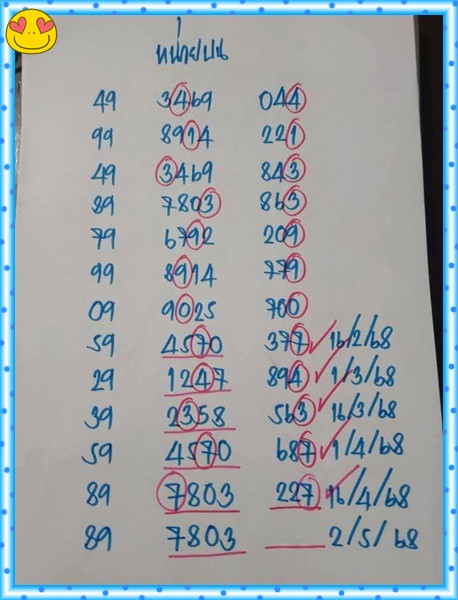 หน่วยบน
49 3469 044
99 8914 221
49 3469 843
89 7803 863
79 6792 209
99 8914 779
09 9025 700
59 4570 377 16/2/68
29 1247 894 1/3/68
39 2358 563 16/3/68
59 4570 687 1/4/68
89 7803 227 16/4/68
89 7803 2/5/68